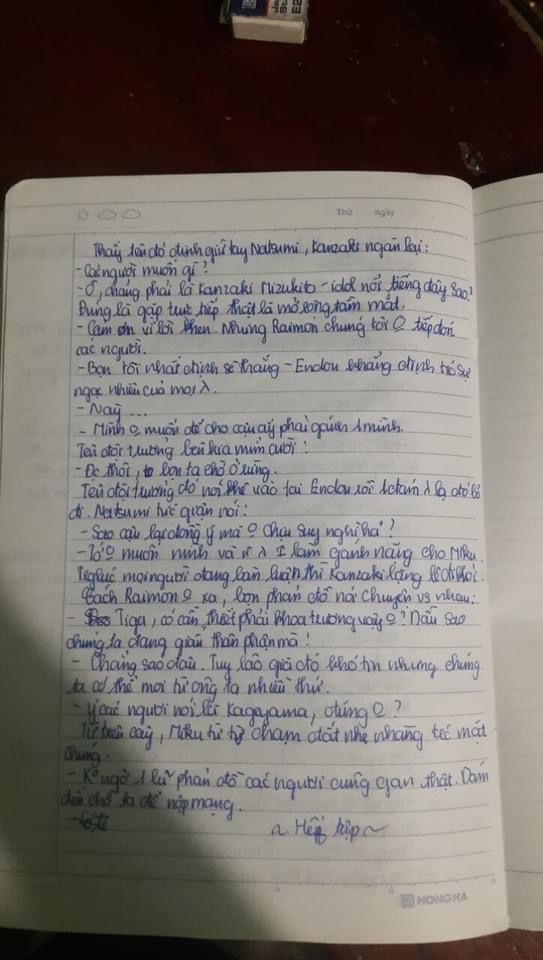 Thứ ngày
Thấy tên đó định giữ tay Natsumi, Kanzaki ngăn lại:
- Các người muốn gì?
- Ồ, chẳng phải là Kanzaki Mizukito - idol nổi tiếng đây sao?
Đúng là gặp trực tiếp thật là mở rộng tầm mắt.
- Cảm ơn vì lời khen. Nhưng Raimon chúng tôi O tiếp đón
các người.
- Bọn tôi nhất định sẽ thắng - Endou khẳng định trc sự
ngạc nhiên của mọi λ.
- Này ...
- Mình O muốn để cho cậu ấy phải gánh 1 mình.
Tên đội trưởng bên kia mỉm cười:
- Để thôi, bọn ta chờ ở rừng.
Tên đội trưởng đó nói thế vào tai Endou rồi λ lạ đó bỏ
đi. Natsumi tức quận nói:
- Sao cậu lại đồng ý mà O chịu suy nghĩ hả?
- Tớ O muốn mình và λ làm gánh nặng cho Miku.
Trg lúc mọi người đang bàn luận thì Kanzaki lặng lẽ rời khỏi.
Cách Raimon O xa, bọn phản đồ nói chuyện vs nhau:
- Tiga, có cần thiết phải khoa trương vậy O? Dẫu sao
chúng ta đang giấu thân phận mà!
- Chẳng sao đâu. Tuy lão già đó khó tin nhưng chúng
ta có thể moi từ ông ta nhiều thứ.
- Ý các ngươi nói là Kageyama, đúng O?
Từ trên cây, Miku từ từ chạm đất nhẹ nhàng trc mặt
chúng.
- Ko ngờ 1 lũ phản đồ các ngươi cũng gan thật. Dám
đến chỗ ta để nạp mạng.
~ Hết tập ~
HONG HA